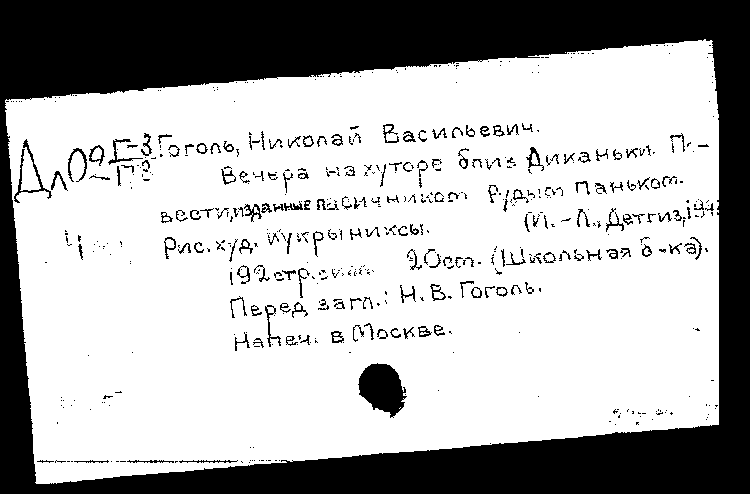 Дл09 Г-3 Гоголь, Николай Васильевич.
П 8 Вечера на хуторе близ Диканьки. По-
вести, изданные пасичником Рудым Паньком.
Рис. худ. Кукрыниксы. (М.-Л., Детгиз,
192 стр. 20 см. (Школьная б-ка).
Перед загл.: Н. В. Гоголь.
Напеч. в Москве.